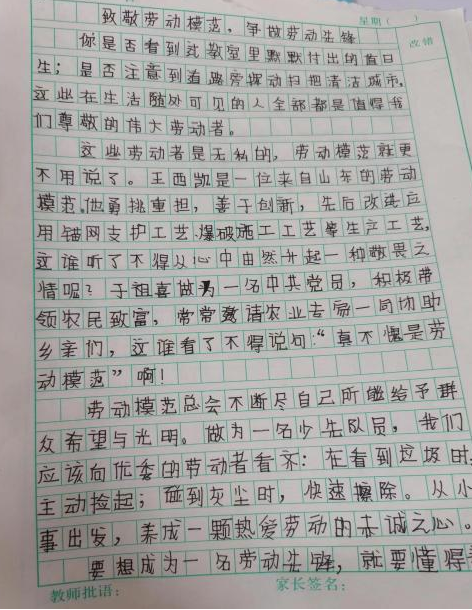 星期（ ）
改错
致敬劳动模范，争做劳动先锋
你是否看到过教室里默默付出的值日
生；是否注意到道路旁摆动扫把清洁城市，
这些在生活随处可见的人全部都是值得我
们尊敬的伟大劳动者。
这些劳动者是无私的，劳动模范就更
不用说了。王西凯是一位来自山东的劳动
模范，他勇挑重担，善于创新，先后改进应
用锚网支护工艺、爆破施工工艺等生产工艺，
这谁听了不得从心中由然升起一种敬畏之
情呢？于祖喜做为一名中共党员，积极带
领农民致富，常常邀请农业专家一同协助
乡亲们，这谁看了不得说句：“真不愧是劳
动模范”啊！
劳动模范总会不断尽自己所能给予群
众希望与光明。做为一名少先队员，我们
应该向优秀的劳动者看齐：在看到垃圾时，
主动捡起；碰到灰尘时，快速擦除。从小
事出发，养成一颗热爱劳动的赤诚之心。
要想成为一名劳动先锋，就要懂得
教师批语： 家长签名：